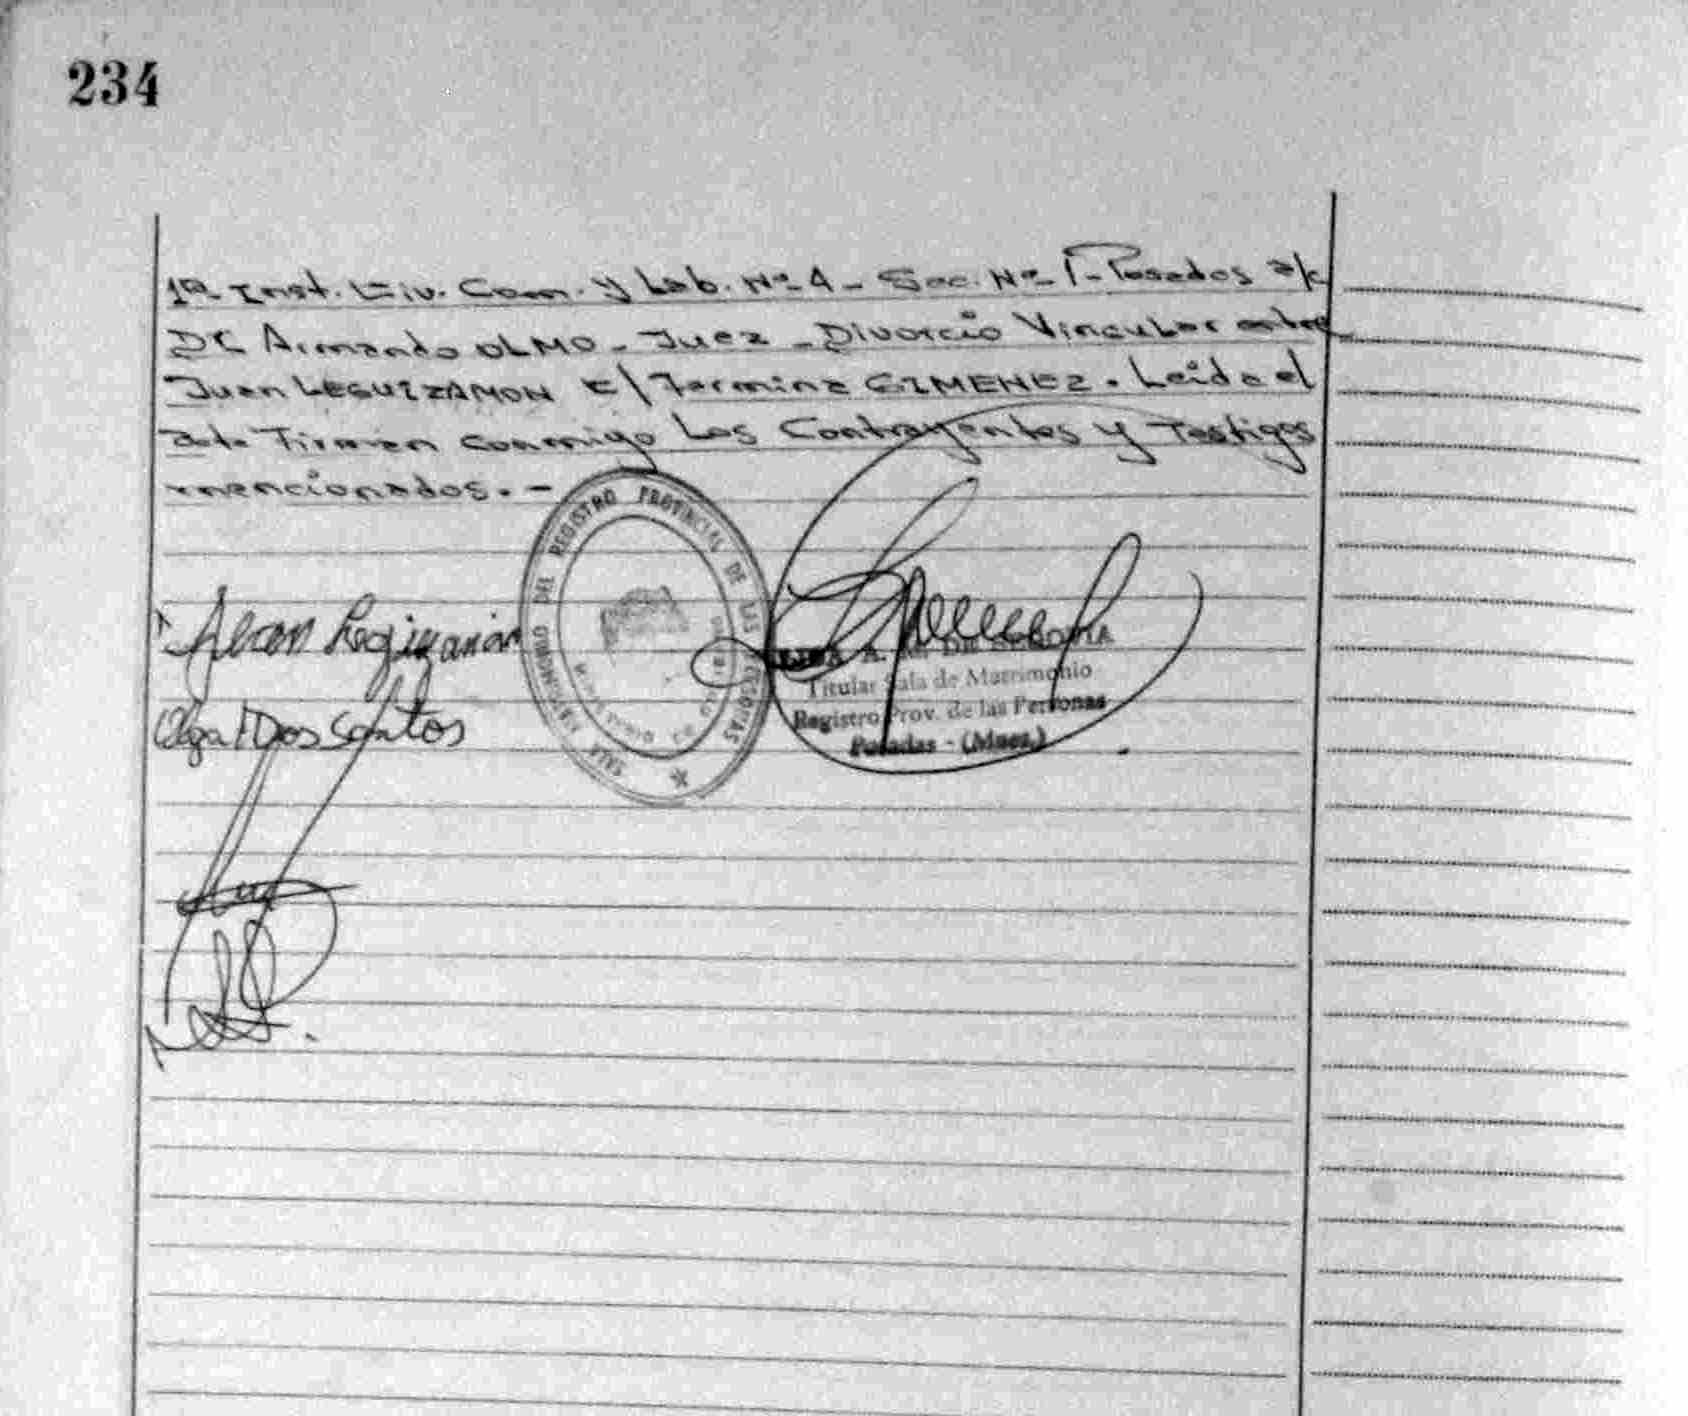 234
1ª Inst. Civ. Com. y Lab. Nº 4 - Sec. Nº 1 - Posadas a/c
Dr Armando OLMO - Juez - Divorcio Vincular entre
Juan LEGUIZAMON c/ Fermina GIMENEZ. Leida el
Acta Firman conmigo Los Contrayentes y Testigos
mencionados. -
Juan Legizamon
Olga Dos Santos
DEL REGISTRO PROVINCIAL DE LAS PERSONAS
A. DE
Titular Sala de Matrimonio
Registro Prov. de las Personas
Posadas - (Mnes.)